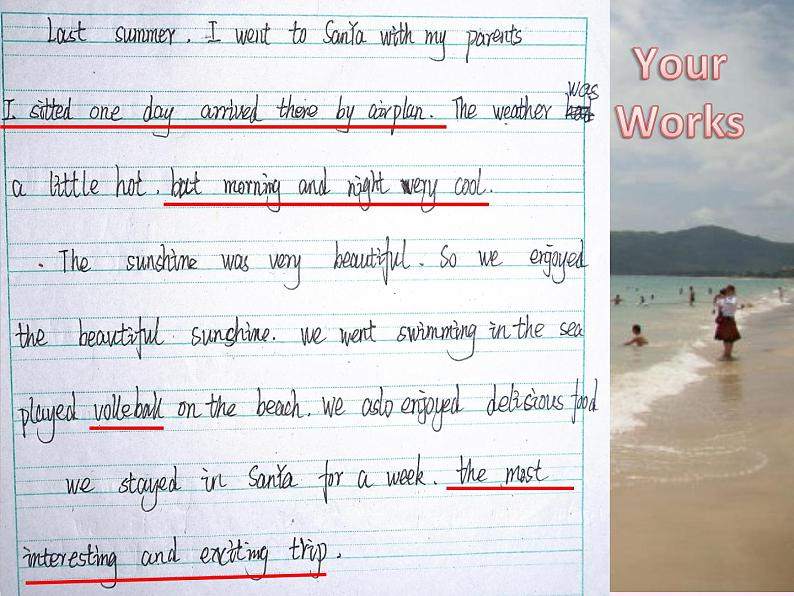 Last summer. I went to Sanya with my parents
I sitted one day arrived there by airplan. The weather was
a little hot. but morning and night very cool.
. The sunshine was very beautiful. So we enjoyed
the beautiful sunshine. we went swimming in the sea
played volleball on the beach. we aslo enjoyed delisious food
we stayed in Sanya for a week. the most
interesting and exciting trip.
Your
Works